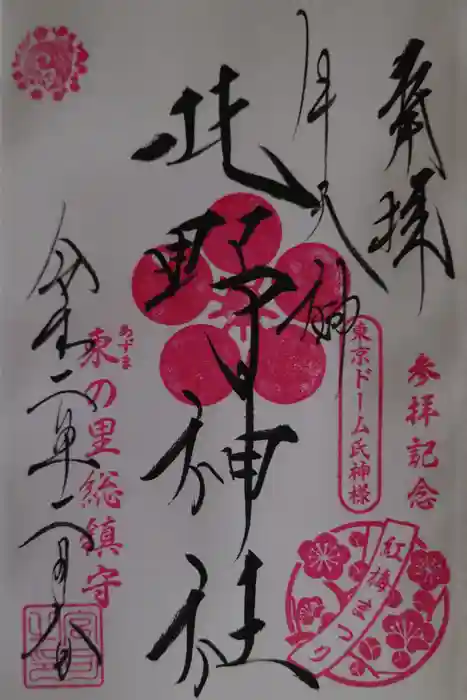 奉拝
牛天神
北野神社
参拝記念
東京ドーム氏神様
紅梅まつり
東の里総鎮守
あづま
令和二年二月